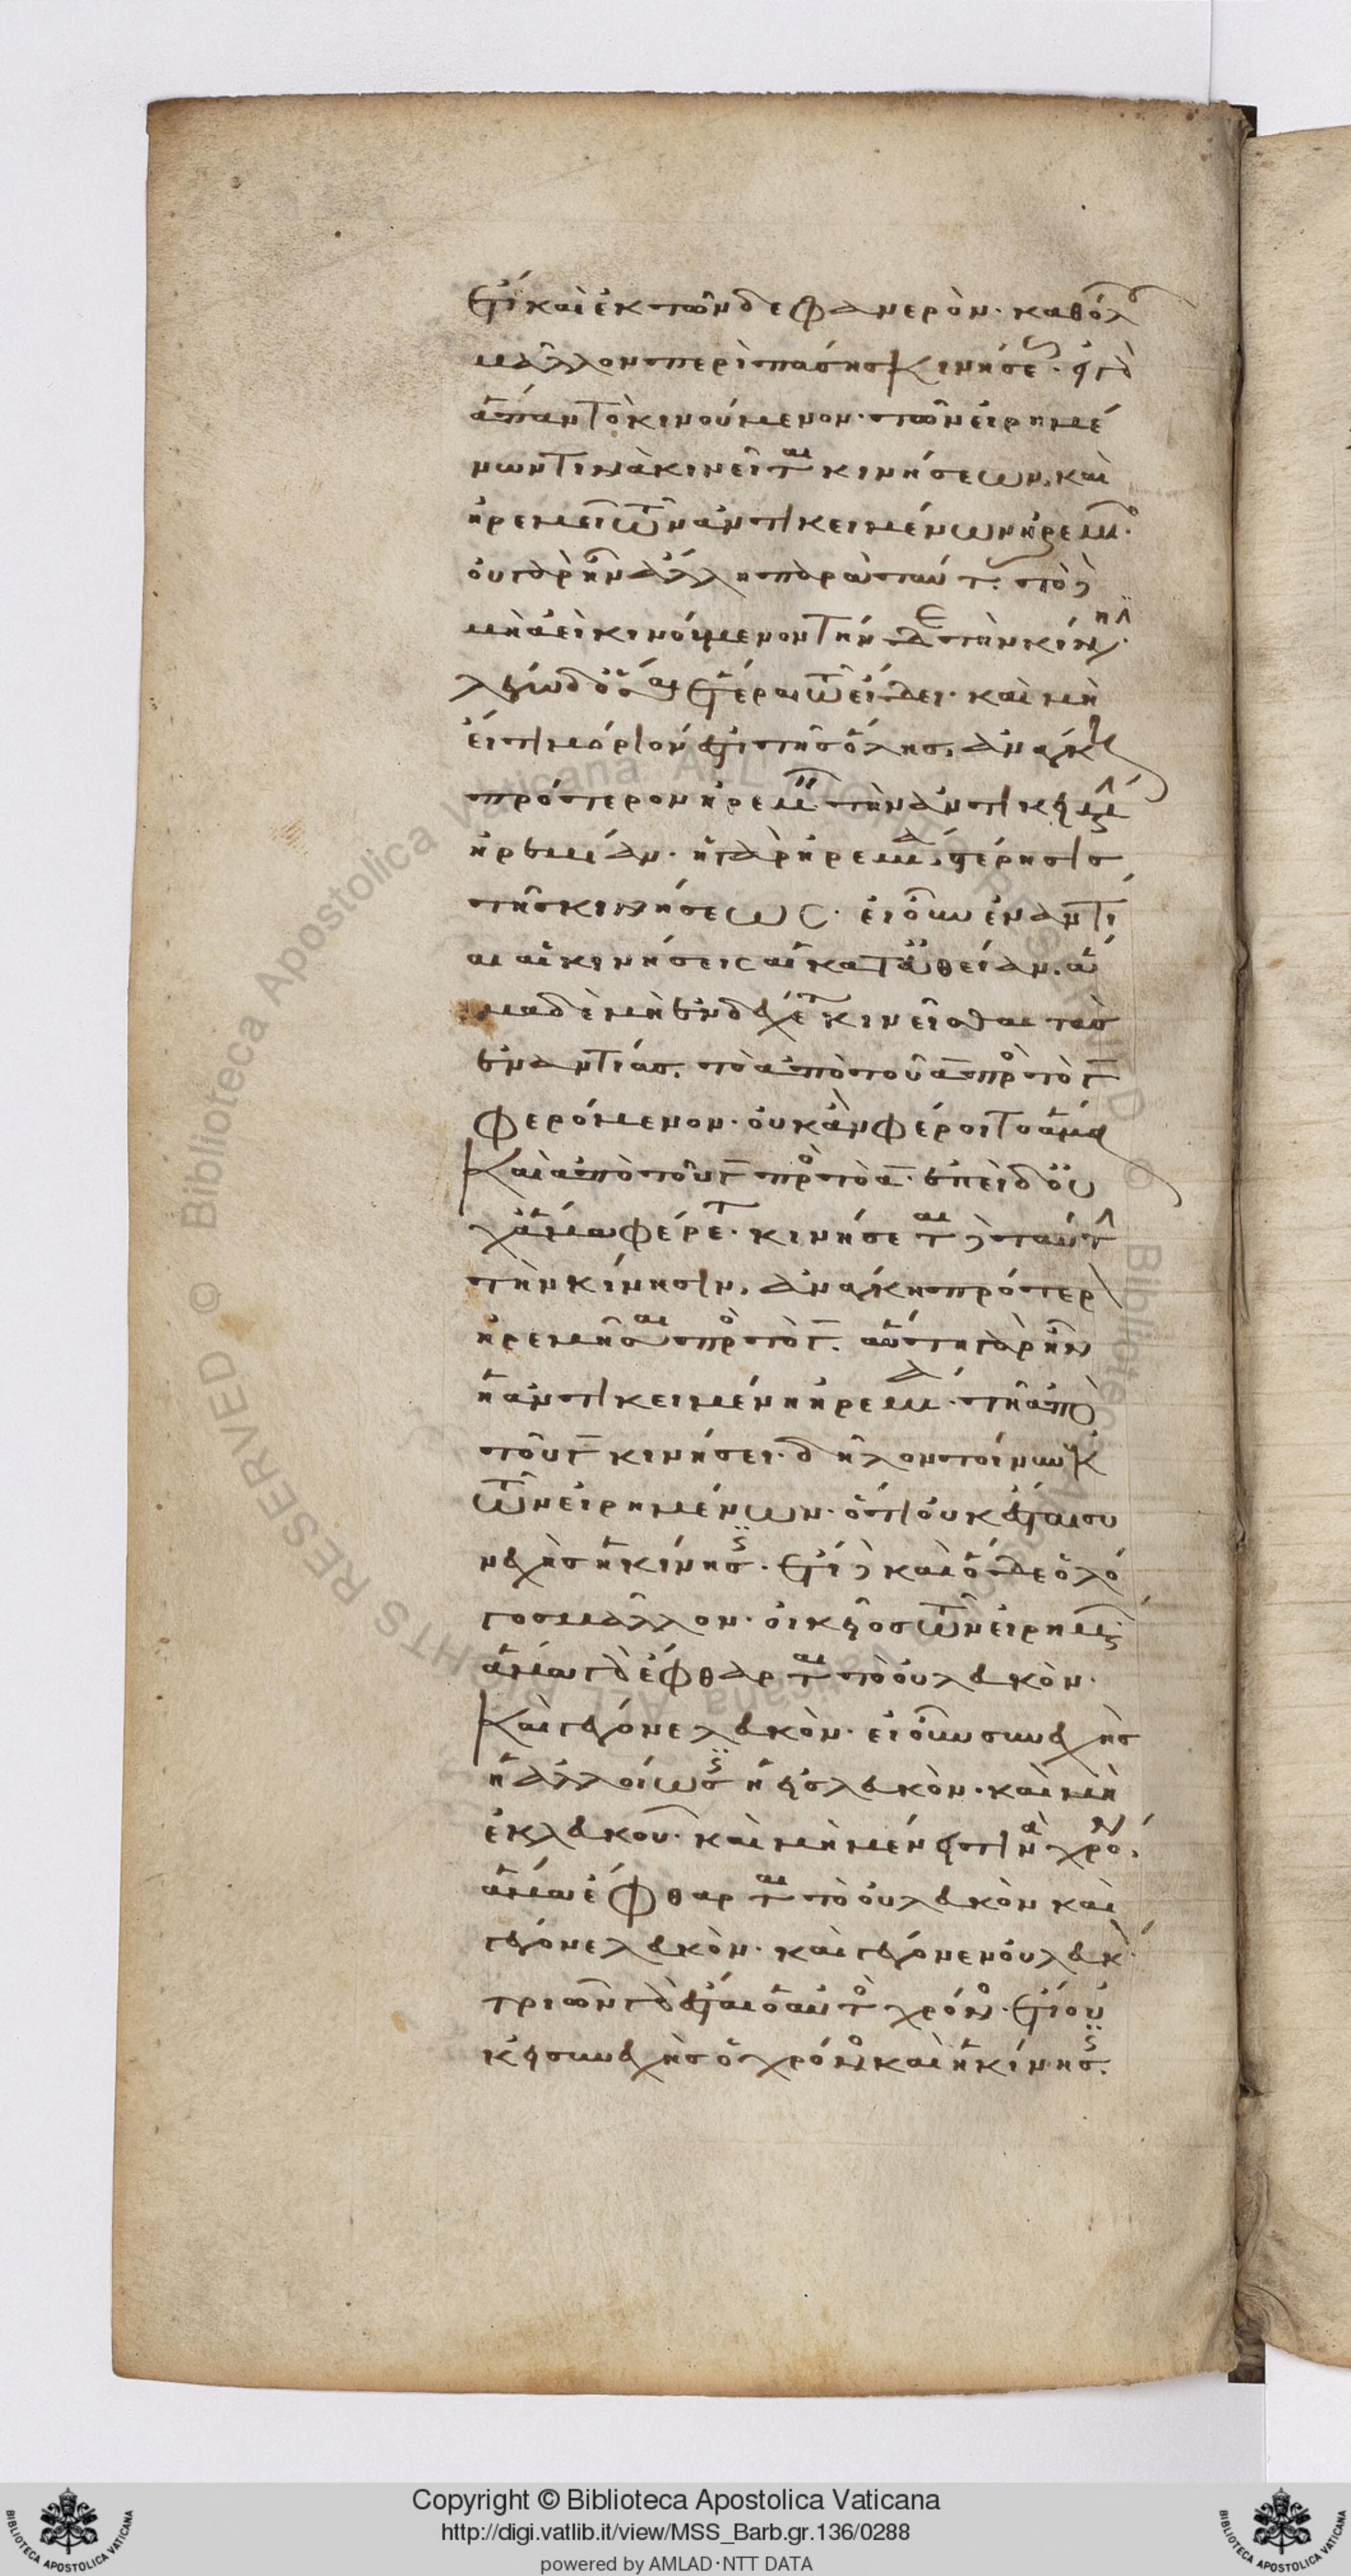 ἔτι καὶ ἐκ τῶνδε φανερὸν· καθόλου
μᾶλλον περὶ πάσης κινήσεως· εἰ γὰρ
ἅπαν τὸ κινούμενον· τῶν εἰρημέ
νων τινὰ κινεῖται κινήσεων, καὶ
ἠρεμεῖ τῶν ἀντικειμένων ἠρεμιῶν·
οὐ γὰρ ἦν ἄλλη παρὰ ταύτας· τὸ δὲ
μὴ ἀεὶ κινούμενον τήνδε τὴν κίνησιν·
λέγω δ' ὅσαι ἕτεραι τῶ εἴδει· καὶ μὴ
εἴ τι μόριόν ἐστι τῆς ὅλης, ἀνάγκη
πρότερον ἠρεμεῖν τὴν ἀντικειμένην
ἠρεμίαν· ἡ γὰρ ἠρεμία στέρησις
τῆς κινήσεως· εἰ οὖν ἐναντί
αι αἱ κινήσεις αἱ κατ' εὐθεῖαν. ἅ
μα δὲ μὴ ἐνδέχεται κινεῖσθαι τὰς
ἐναντίας. τὸ ἀπὸ τοῦ α πρὸς τὸ γ
φερόμενον· οὐκ ἂν φέροιτο ἅμα
καὶ ἀπὸ τοῦ γ πρὸς τὸ α· ἐπεὶ δ' οὐ
χ ἅμα φέρεται· κινήσεται δὲ ταύτην
τὴν κίνησιν, ἀνάγκη πρότερον
ἠρεμῆσαι πρὸς τὸ γ. αὕτη γὰρ ἦν
ἡ ἀντικειμένη ἠρεμία· τῆ ἀπὸ
τοῦ γ κινήσει· δῆλον τοίνυν ἐκ
τῶν εἰρημένων· ὅτι οὐκ ἔσται συ
νεχὴς ἡ κίνησις· ἔτι δὲ καὶ ὅδε ὁ λό
γος μᾶλλον· οἰκεῖος τῶν εἰρημένων·
ἅμα γὰρ ἔφθαρται τὸ οὐ λευκὸν·
καὶ γέγονε λευκὸν· εἰ οὖν συνεχὴς
ἡ ἀλλοίωσις ἡ εἰς λευκὸν· καὶ μὴ
ἐκ λευκοῦ· καὶ μὴ μένει τινὰ χρόνον,
ἅμα ἔφθαρται τὸ οὐ λευκὸν καὶ
γέγονε λευκὸν· καὶ γέγονεν οὐ λευκὸν·
τριῶν γὰρ ἔσται ὁ αὐτὸς χρόνος· ἔτι οὐ
κ εἰ συνεχὴς ὁ χρόνος καὶ ἡ κίνησις.
Copyright © Biblioteca Apostolica Vaticana
http://digi.vatlib.it/view/MSS_Barb.gr.136/0288
powered by AMLAD·NTT DATA